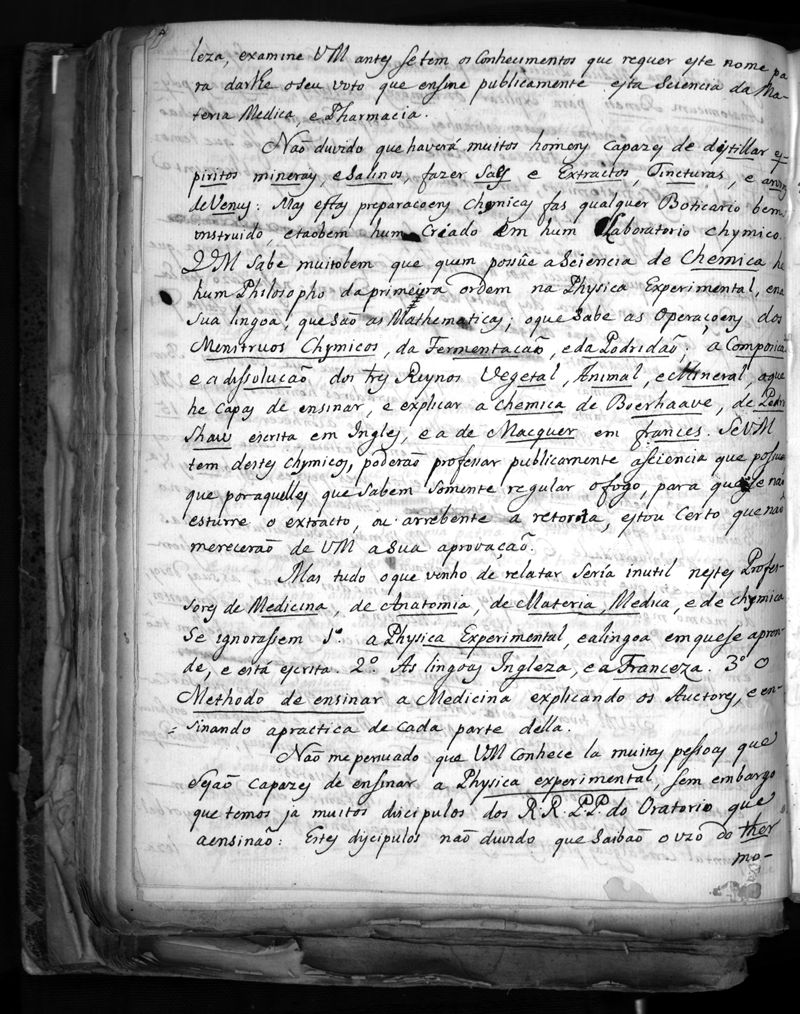 leza, examine VM antes se tem os Conhecimentos que requer este nome pa
ra darlhe o seu voto que ensine publicamente esta Sciencia da Ma-
teria Medica e Pharmacia.
Naõ duvido que haverá muitos homens Capazes de distillar es-
piritos mineraes, e Salinos, fazer Saes e Extractos, Tincturas, e
de Venus: Mas estas preparacoens Chymicas fas qualquer Boticario bem
instruido, e taobem hum Criado em hum Laboratorio chymico.
VM Sabe muitobem que quem possûe a Sciencia de Chemica he
hum Philosopho da primeira ordem na Physica Experimental, e na
Sua lingoa, que Saõ as Mathematicas; o que Sabe as Operaçoens dos
Menstruos Chymicos, da Fermentacaõ, e da Podridaõ; a Composica
e a dissolucaõ dos tres Reynos Vegetal, Animal, e Mineral, a que
he Capaz de ensinar, e explicar a Chemica de Boerhaave, de Pedro
Shaw escrita em Ingles, e a de Macquer em frances. Se VM
tem destes Chymicos, poderaõ professar publicamente a sciencia que possue
que por aquelles que Sabem Somente regular o fogo, para que se naõ
esturre o extracto, ou arrebente a retorta, estou Certo que naõ
mereceraõ de VM a Sua aprovaçaõ.
Mas tudo o que venho de relatar Sería inutil nestes Profes-
Sores de Medicina, de Anatomia, de Materia Medica, e de chymica
Se ignorassem 1º. a Physica Experimental, e a lingoa em que se apren-
de, e está escrita. 2º. As lingoas Ingleza, e a Franceza. 3º O
Methodo de ensinar a Medicina explicando os Auctores, e en-
sinando a practica de Cada parte della.
Naõ me persuado que VM Conhece la muitas pessoas que
Sejaõ Capazes de ensinar a Physica experimental, Sem embargo
que temos ja muitos discipulos dos R.R. P.P. do Oratorio que
a ensinaõ: Estes discipulos naõ duvido que Saibaõ o uzo do ther
mo-